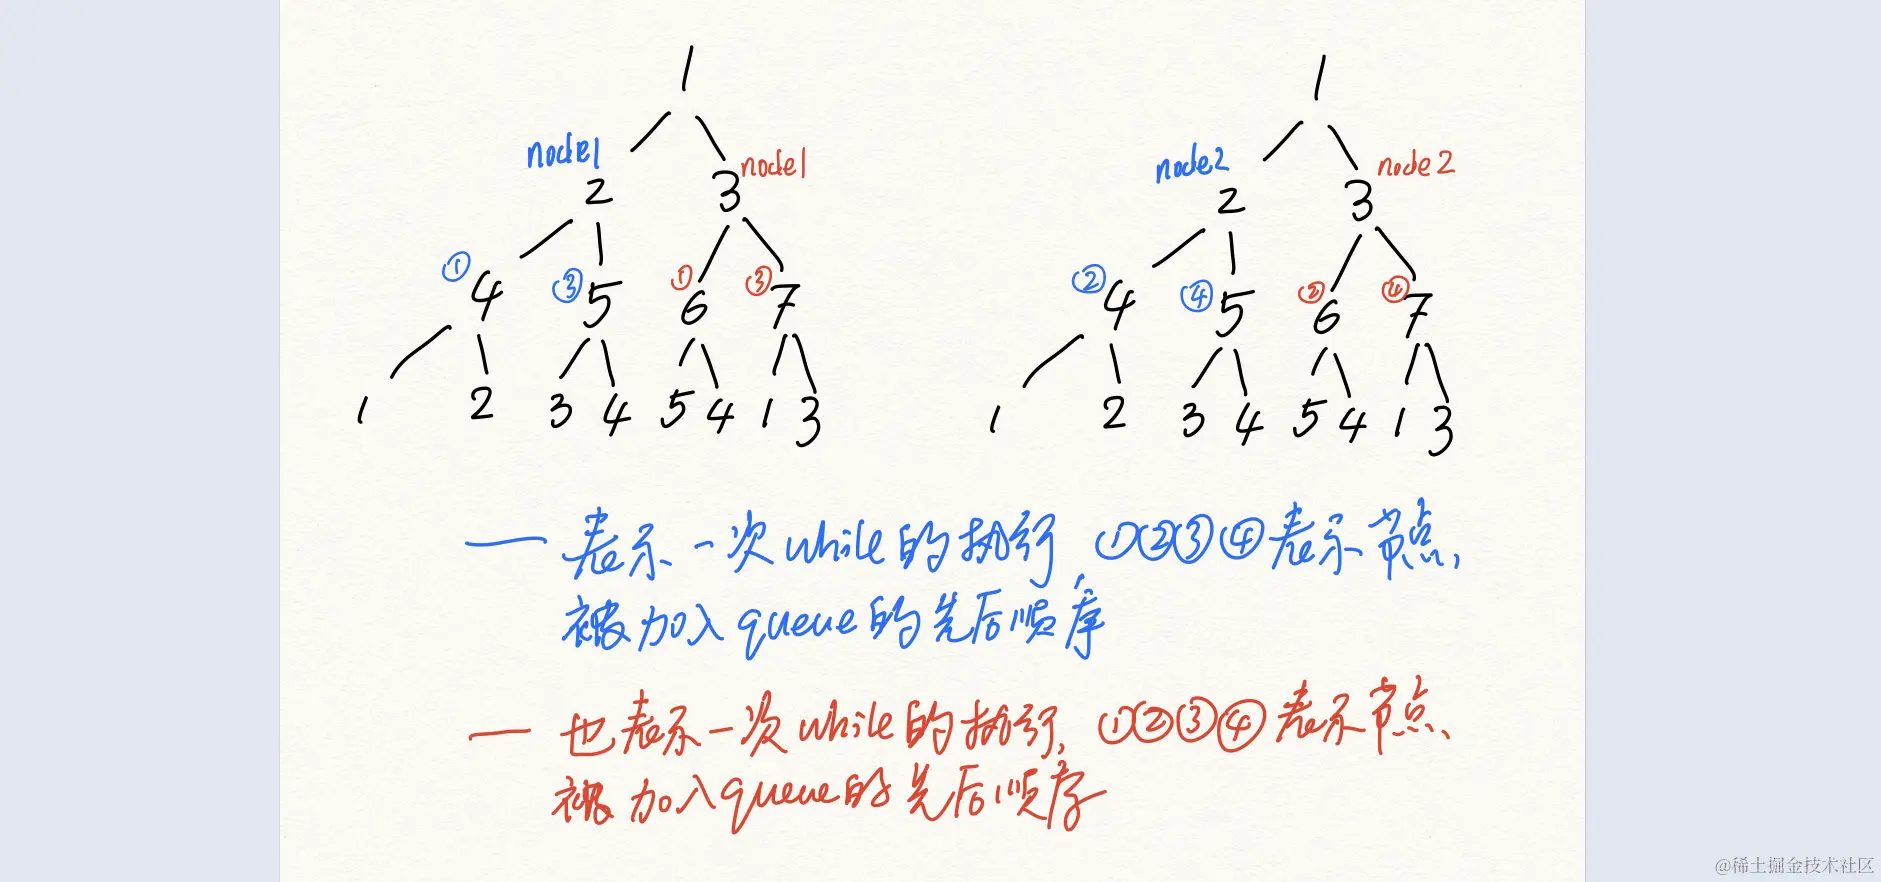 1 1
node1 node1 node2 node2
2 3 2 3
① ③ ① ③ ② ④ ② ④
4 5 6 7 4 5 6 7
1 2 3 4 5 4 1 3 1 2 3 4 5 4 1 3
— 表示一次while的执行 ①②③④表示节点,
被加入queue的先后顺序
— 也表示一次while的执行, ①②③④表示节点、
被加入queue的先后顺序
@稀土掘金技术社区